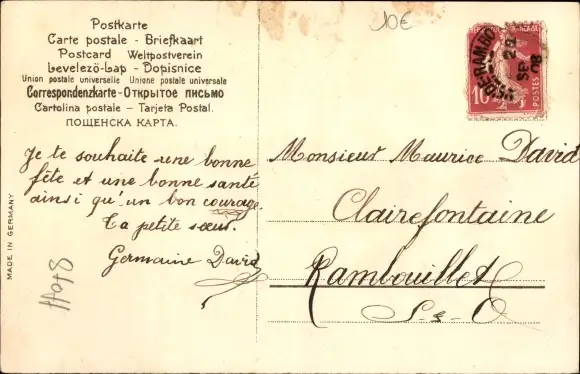 Postkarte
Carte postale - Briefkaart
Postcard Weltpostverein
Levelező-Lap - Dopisnice
Union postale universelle Unione postale universale
Correspondenzkarte - Открытое письмо
Cartolina postale - Tarjeta Postal.
ПОЩЕНСКА КАРТА.
10€
28
SP
08
10
POSTES
Je te souhaite une bonne
fête et une bonne santé
ainsi qu'un bon courage.
Ta petite sœur.
Germaine David
Monsieur Maurice David
Clairefontaine
Rambouillet
S-&-O
MADE IN GERMANY